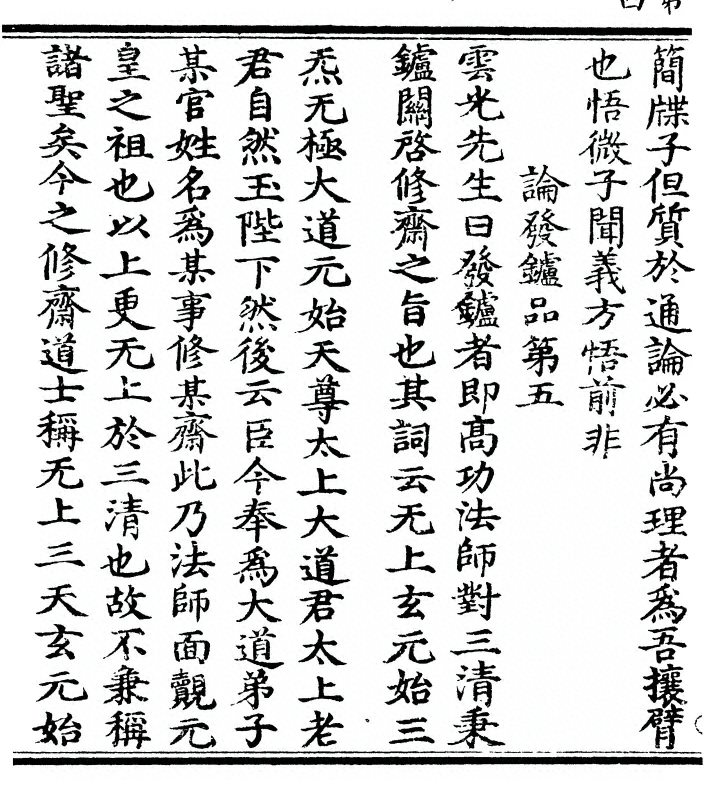 簡牒子但質於通論必有尚理者爲吾攘臂
也悟微子聞義方悟前非
論發鑪品第五
雲光先生曰發鑪者即高功法師對三清秉
鑪關啓修齋之旨也其詞云无上玄元始三
炁无極大道元始天尊太上大道君太上老
君自然玉陛下然後云臣今奉爲大道弟子
某官姓名爲某事修某齋此乃法師面覿元
皇之祖也以上更无上於三清也故不兼稱
諸聖矣今之修齋道士稱无上三天玄元始